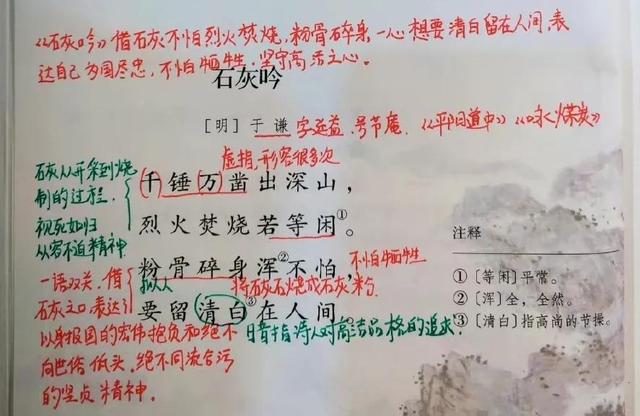 《石灰吟》借石灰不怕烈火焚烧,粉骨碎身,一心想要清白留在人间,表
达自己为国尽忠,不怕牺牲,坚守高洁之心。
石灰吟
[明]于谦 字廷益 号节庵、《平阳道中》《咏煤炭》
虚指,形容很多次
石灰从开采到烧
制的过程.
视死如归
从容不迫精神
千锤万凿出深山,
烈火焚烧若等闲①。
粉骨碎身浑②不怕,
不怕牺牲
拟人
将石灰石烧成石灰粉
要留清白③在人间。
暗指诗人对高洁品格的追求
一语双关、借
石灰之口表达
以身报国的宏伟抱负和绝不
向世俗低头,绝不同流合污
的坚贞精神.
注释
①[等闲]平常。
②[浑]全,全然。
③[清白]指高尚的节操。